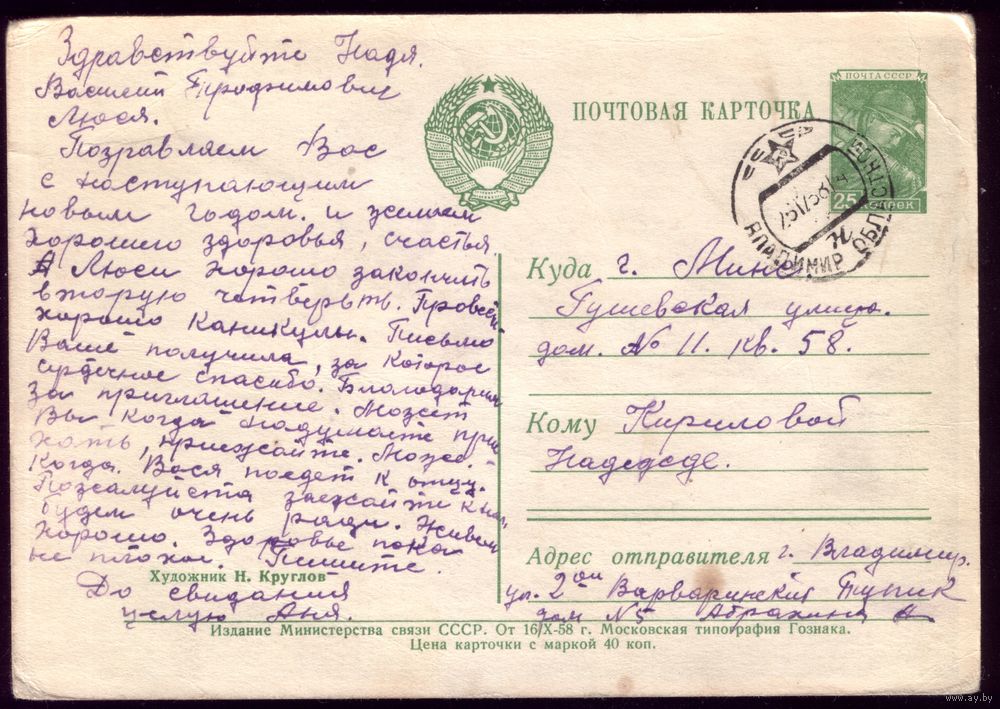 Здравствуйте Надя.
Василий Трофимович
Люся.
Поздравляем Вас
с наступающим
новым годом. и желаем
хорошего здоровья, счастья.
А Люси хорошо закончить
вторую четверть. Провести
хорошо каникулы. Письмо
Ваше получила, за которое
сердечное спасибо. Благодарим
за приглашение. Может
Вы когда надумаете прие
хать, приезжайте. Может
когда. Вася поедет к отцу.
Пожалуйста заезжайте к нам,
будем очень рады. Живем
хорошо. Здоровье пока
не плохое. Пишите.
До свидания
целую Аня.
Художник Н. Круглов
ПОЧТОВАЯ КАРТОЧКА
ПОЧТА СССР
25 КОПЕЕК
ВЛАДИМИР ОБЛАСТНОЙ
Куда г. Минск
Гушевская улица.
дом. № 11. кв. 58.
Кому Кириловой
Надежде.
Адрес отправителя г. Владимир.
ул. 2ой Варваринский Тупик
дом №5 Абрахина А
Издание Министерства связи СССР. От 16/X-58 г. Московская типография Гознака.
Цена карточки с маркой 40 коп.
www.ay.by